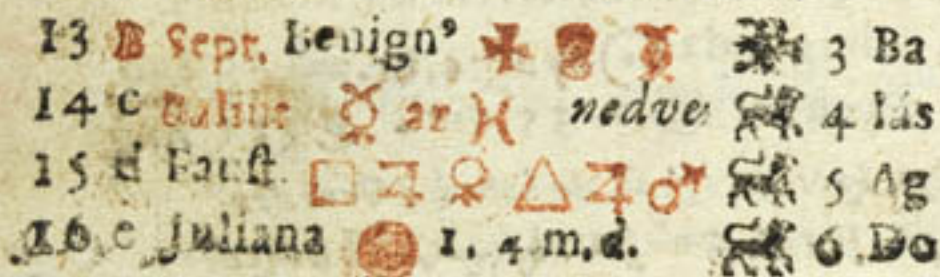 13 B Sept. Benign⁹ ✠ 3 Ba
14 c ☿ ar ♓ nedve 4
15 d Faust. □ ♃ ♀ △ ♃ ♂ 5 Ag
16 e Juliana 1, 4 m. d. 6 Do